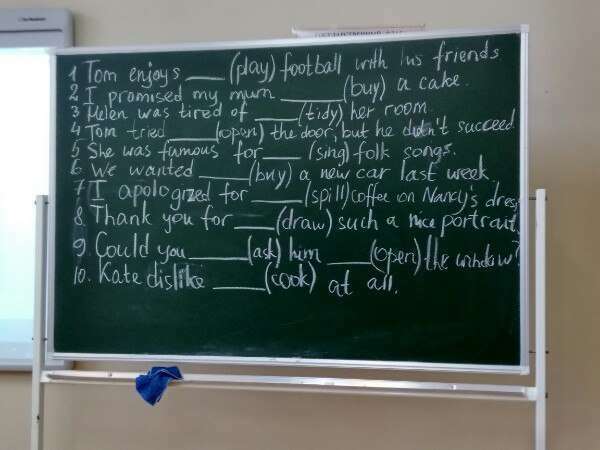 1 Tom enjoys ____ (play) football with his friends
2 I promised my mum ______ (buy) a cake.
3 Helen was tired of ____ (tidy) her room.
4 Tom tried _____ (open) the door, but he didn't succeed.
5 She was famous for ____ (sing) folk songs.
6 We wanted _____ (buy) a new car last week.
7 I apologized for _____ (spill) coffee on Nancy's dress.
8. Thank you for ____ (draw) such a nice portrait.
9. Could you ______ (ask) him ____ (open) the window?
10. Kate dislike _____ (cook) at all.